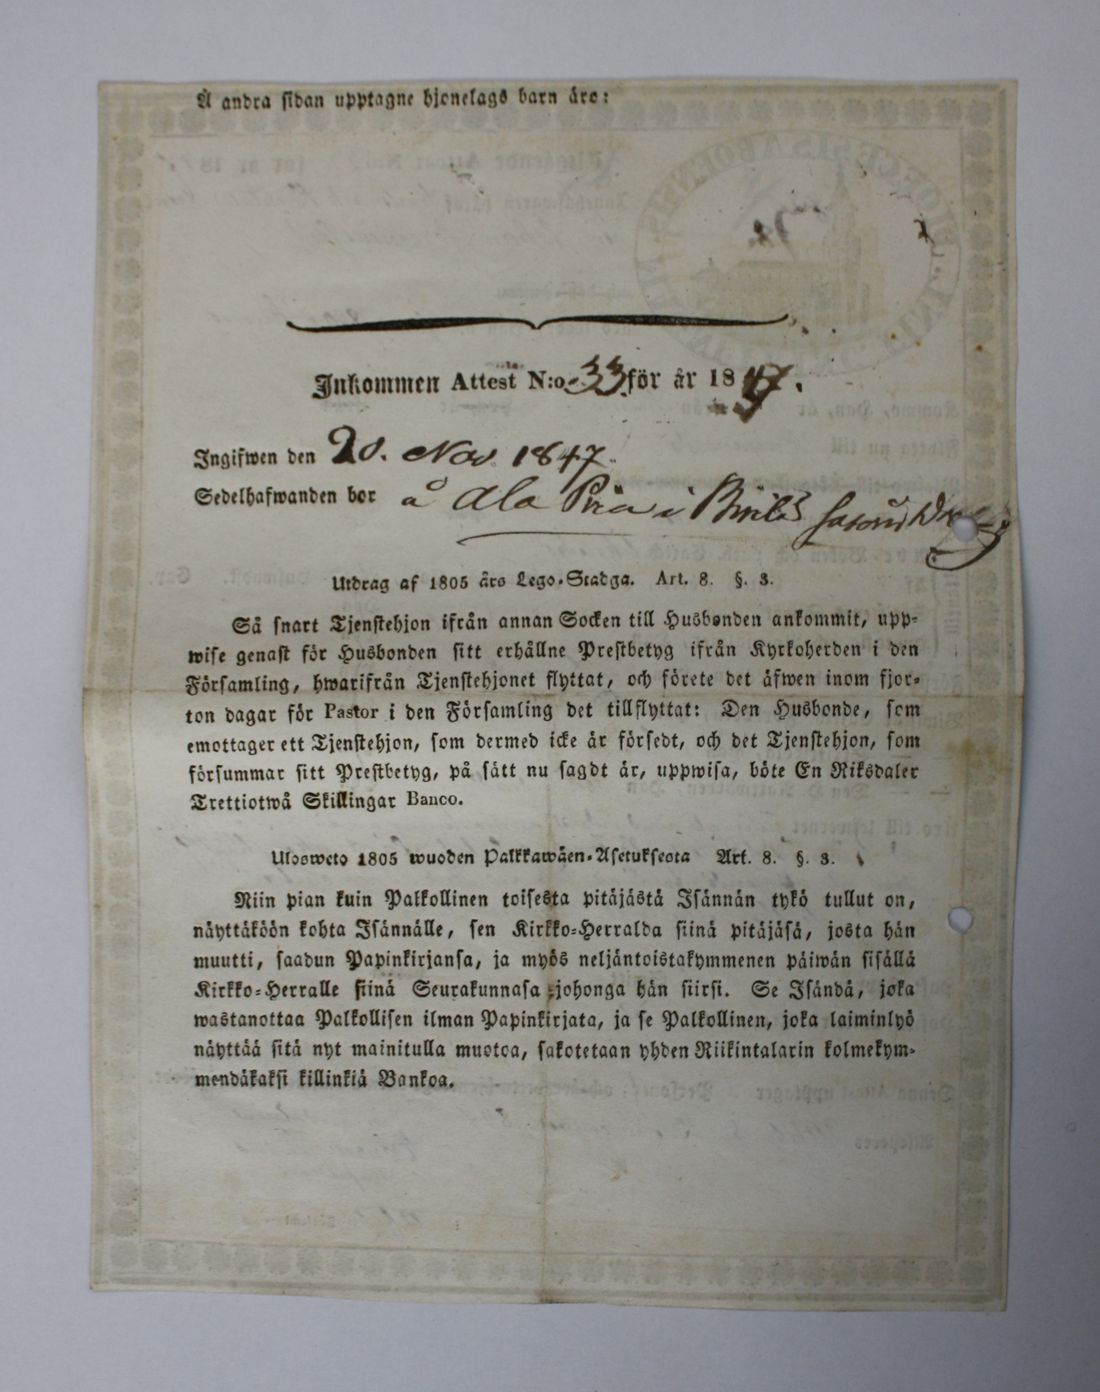 Å andra sidan upptagne hjonelags barn äro:
Inkommen Attest N:o 33 för år 1847.
Ingifwen den 20. Nov 1847
Sedelhafwanden bor å Ala Piia i
Utdrag af 1805 års Lego-Stadga. Art. 8. §. 3.
Så snart Tjenstehjon ifrån annan Socken till Husbonden ankommit, upp-
wise genast för Husbonden sitt erhållne Prestbetyg ifrån Kyrkoherden i den
Församling, hwarifrån Tjenstehjonet flyttat, och förete det äfwen inom fjor-
ton dagar för Pastor i den Församling det tillflyttat: Den Husbonde, som
emottager ett Tjenstehjon, som dermed icke är försedt, och det Tjenstehjon, som
försummar sitt Prestbetyg, på sätt nu sagdt är, uppwisa, böte En Riksdaler
Trettiotwå Skillingar Banco.
Ulosweto 1805 wuoden Palkkawäen-Asetuksesta Art. 8. §. 3.
Niin pian kuin Palkollinen toisesta pitäjästä Isännän tykö tullut on,
näyttäköön kohta Isännälle, sen Kirkko-Herralda siinä pitäjäsä, josta hän
muutti, saadun Papinkirjansa, ja myös neljäntoistakymmenen päiwän sisällä
Kirkko-Herralle siinä Seurakunnasa johonga hän siirsi. Se Isändä, joka
wastanottaa Palkollisen ilman Papinkirjata, ja se Palkollinen, joka laiminlyö
näyttää sitä nyt mainitulla muotoa, sakotetaan yhden Riikintalarin kolmekym-
mendäkaksi killinkiä Bankoa.